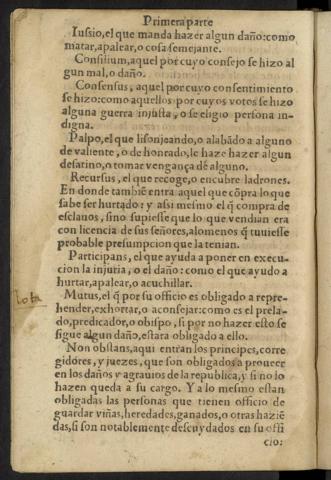 Primera parte
Iussio, el que manda hazer algun daño: como
matar, apalear, o cosa semejante.
Consilium, aquel por cuyo consejo se hizo al
gun mal, o daño.
Consensus, aquel por cuyo consentimiento
se hizo: como aquellos por cuyos votos se hizo
alguna guerra injusta, o se eligio persona in-
digna.
Palpo, el que lisonjeando, o alabãdo a alguno
de valiente, o de honrado, le haze hazer algun
desatino, o tomar vengança dẽ alguno.
Recursus, el que recoge, o encubre ladrones.
En donde tambiẽ entra aquel que cõpra lo que
sabe ser hurtado: y asi mesmo el q̃ compra de
esclauos, sino supiesse que lo que vendian era
con licencia de sus señores, alomenos q̃ tuuiesse
probable presumpcion que la tenian.
Participans, el que ayuda a poner en execu-
cion la injuria, o el daño: como el que ayudo a
hurtar, apalear, o acuchillar.
Mutus, el q̃ por su officio es obligado a repre-
hender, exhortar, o aconsejar: como es el prela-
do, predicador, o obispo, si por no hazer esto se
sigue algun daño, estara obligado a ello.
Non obstans, aqui entran los principes, corre
gidores, y juezes, que son obligados a proueer
en los daños y agrauios de la republica, y si no lo
hazen queda a su cargo. Y a lo mesmo estan
obligadas las personas que tienen officio de
guardar viñas, heredades, ganados, o otras haziẽ
das, si son notablemente descuydados en su offi
cio: